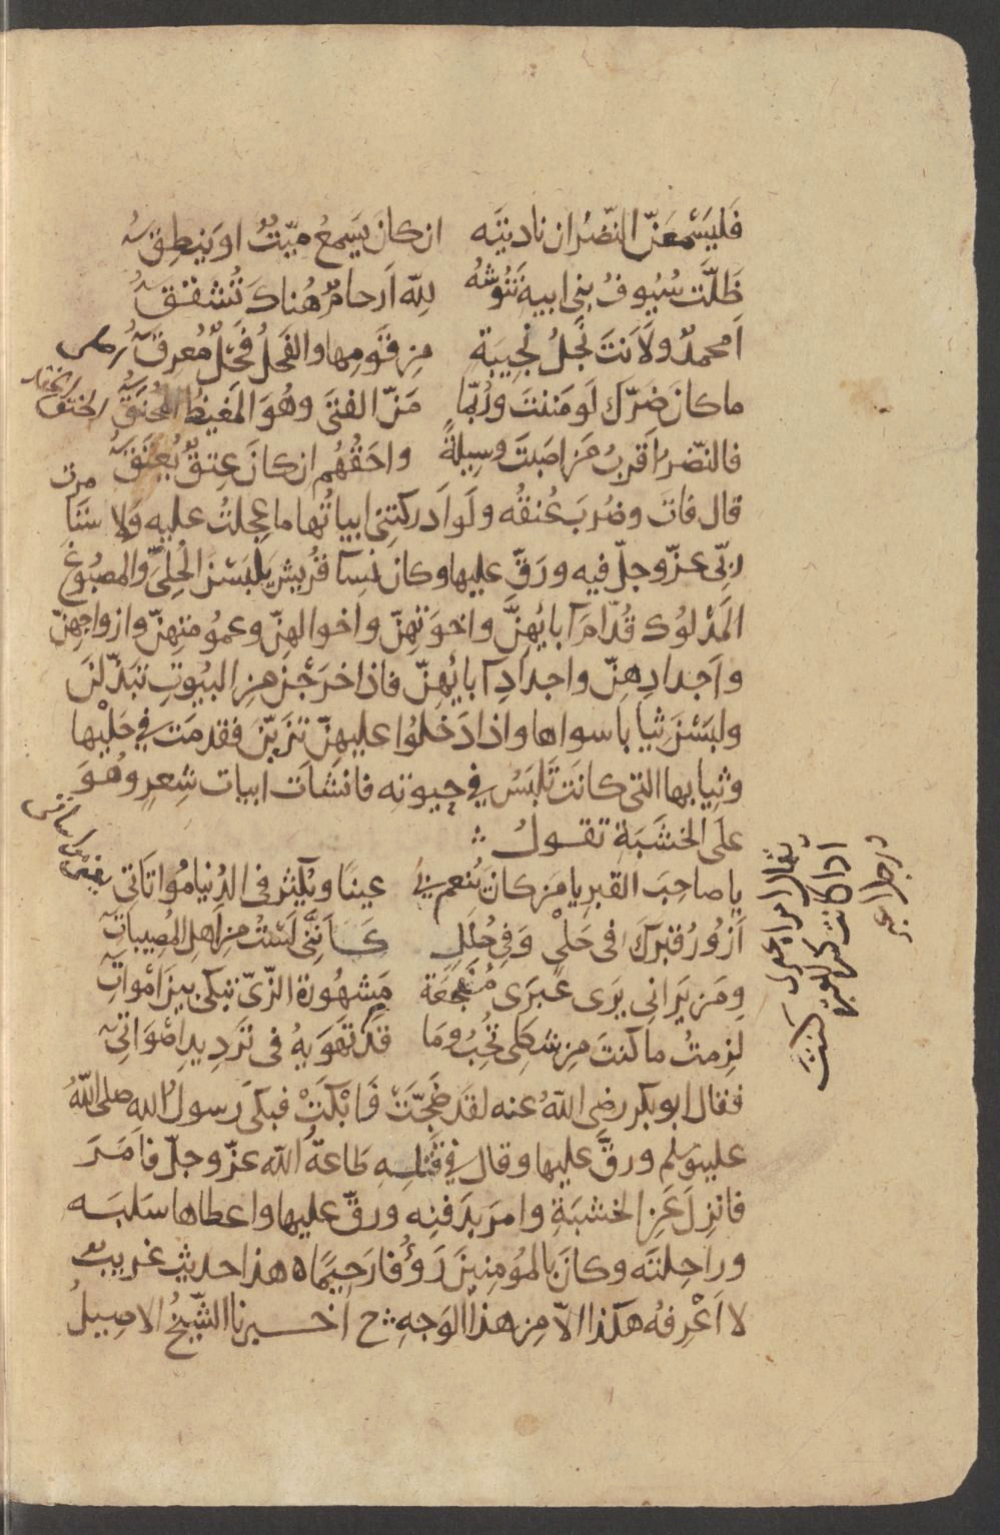 فَليَسْمعَنّ النّضرُ ان ناديتَه   ان كانَ يَسمعُ ميّتٌ او يَنطِقُ
ظَلّت سُيوفُ بني ابيه تَنُوشُه   للّه اَرحامٌ هُناكَ تُشقّقُ
اَمحمدٌ ولَاَنتَ نَجلُ نجيبَةٍ   مِن قَومِها والفَحلُ فَحلٌ مُعرقُ
ما كانَ ضرّك لَو مَننتَ ورُبّما   مَنّ الفتَى وهُوَ المَغيظُ المُحنَقُ
فالنّضرُ اَقربُ مَن اَصَبتَ وسِيلةً   واحَقّهُم ان كانَ عِتقٌ يُعتَقُ
قال فاتَ وضُربَ عُنقُه ولَو اَدركتني ابياتُها ما عجلتُ عليه ولا سَنَا
ربّي عزّ وجلّ فيه ورَقّ عليها وكان نسآ قُريش يَلبَسْنَ الحُلِيّ والمصبُوغَ
المَدْلوُك قُدّامَ آبائِهنَّ واخوَتِهنّ واخوالهِنّ وعمُومتِهنّ وازواجِهنّ
واَجدادِهنّ واجدادِ آبائِهنّ فاذا خرَجْنَ مِن البيُوتِ تبَذّلنَ
ولبَسْنَ ثيابا سواها واذا دَخلُوا عليهنّ تزَيّنّ فقدمَت في حَليْها
وثيابها التي كانَت تَلبَسُ في حيوته فانشاَت ابيات شِعرٍ وهُوَ
علَى الخشَبَةِ تقولُ
يا صاحبَ القبرِ يا مَن كانَ يُنعم بي   عينًا ويُكثر في الدُنيا مُواتَاتي
اَزُورُ قبرَكَ في حَليٍ وَفي حُلَلٍ   كَاَنّني لَسْتُ مِن اَهلِ المصِيباتِ
ومَن يَرَاني يَرى عَبرَى مُفجّعَة   مَشهُورة الزّىّ تبكى بينَ اَمْواتِ
لزِمتُ ما كنتَ مِن شكلي تُحِبُ ومَا   قد تَهوَيهُ في تَرديدِ اَصْوَاتي
فقال ابو بكر رضي اللّهُ عنه لقَد ضَجّتْ فَاَبْكَتْ فبكى رَسولُ اللهِ صلى اللّهُ
عليه وسلم ورقَّ عليها وقال في قَتْلِهِ طَاعةُ اللّه عزّ وجلّ فاَمَرَ
فانزِلَ عَن الخشبَةِ وامرَ بدَفنِه ورقّ عليها واعطاها سَلبَه
وراحِلتَه وكانَ بالمؤمِنينَ رَؤُفا رَحِيمًا ه هذا حديث غريب
لا اَعْرِفُه هكَذا الاّ مِن هذا الوَجهِ ح اخبرنا الشّيخُ الاصيلُ